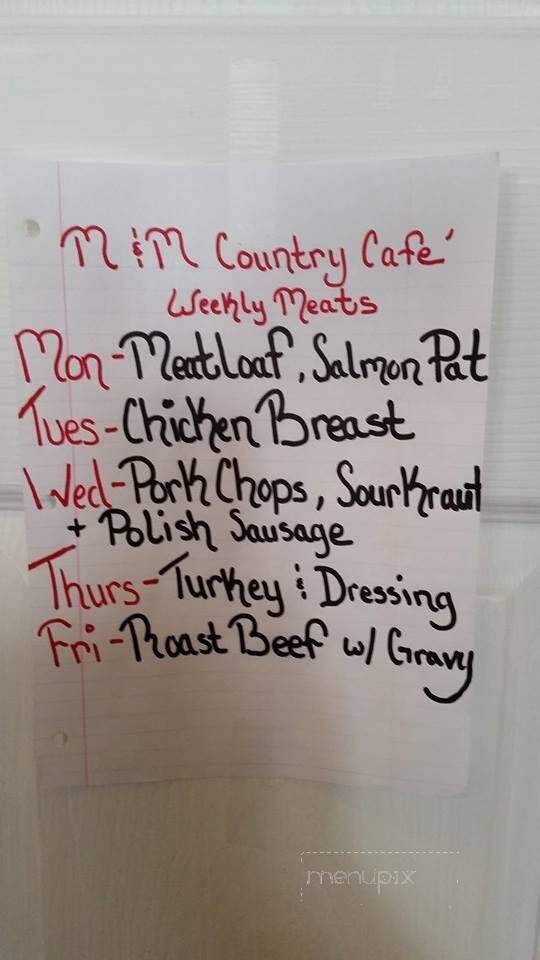 M & M Country Cafe'
Weekly Meats
Mon-Meatloaf, Salmon Pat
Tues-Chicken Breast
Wed-Pork Chops, Sourkraut
+ Polish Sausage
Thurs-Turkey & Dressing
Fri-Roast Beef w/ Gravy
menupix